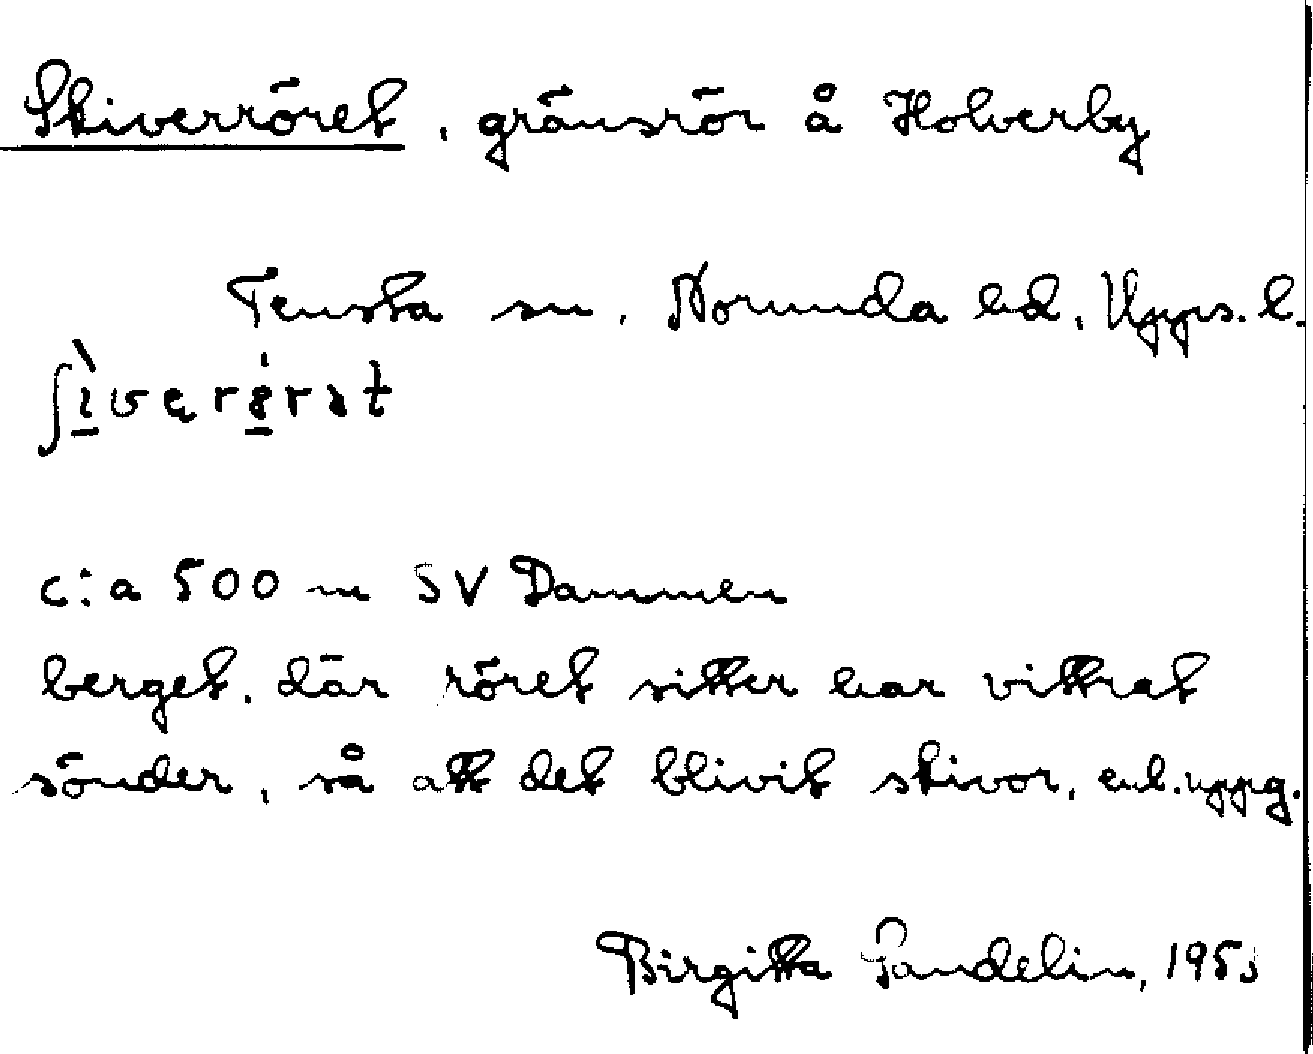 Skiverröret, gränsrör å Holverby
Tensta sn, Norunda hd, Upps. l.
c:a 500 m SV Dammen
berget, där röret sitter har vittrat
sönder, så att det blivit skivor, enl. uppg.
Birgitta Sandelin,